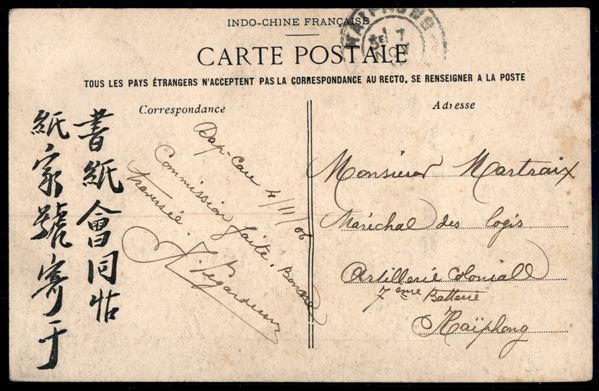 INDO-CHINE FRANÇAISE
HAIPHONG
7
CARTE POSTALE
TOUS LES PAYS ÉTRANGERS N'ACCEPTENT PAS LA CORRESPONDANCE AU RECTO. SE RENSEIGNER A LA POSTE
Correspondance
Adresse
書紙會同帖
紙家號寄于
Dap-Cau 4/11/06
Commission faite. Bonne
traversée.
Monsieur Martraix
Maréchal des logis
Artillerie Coloniale
7ème Batterie
Haïphong